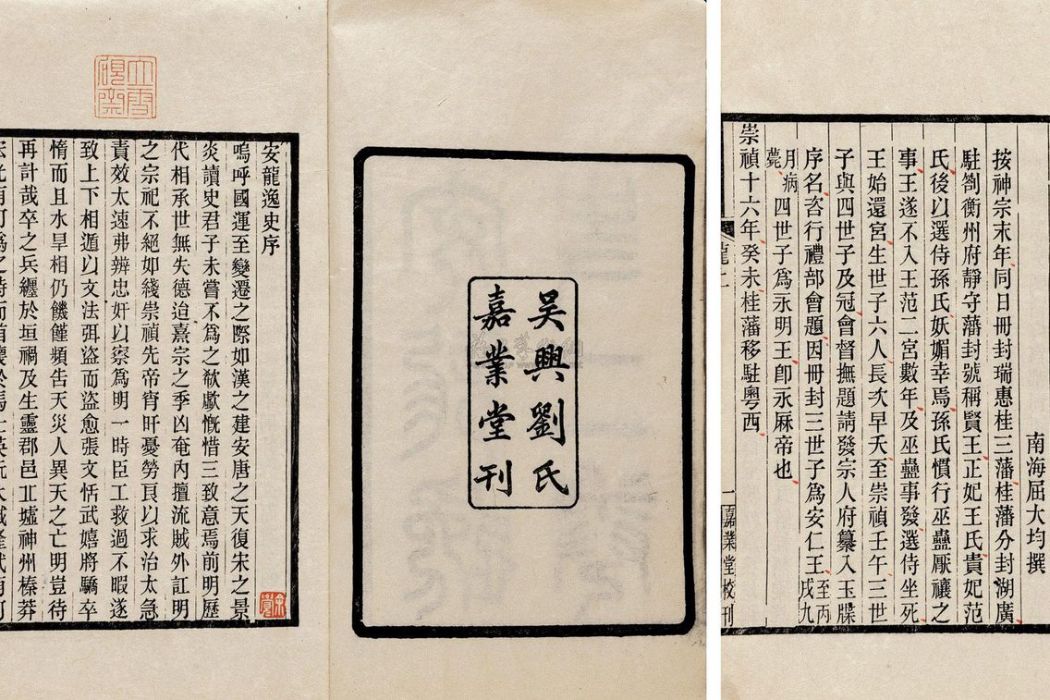 安龍逸史序
嗚呼國運至變遷之際如漢之建安唐之天復宋之景
炎讀史君子未嘗不爲之欷歔慨惜三致意焉前明歷
代相承世無失德迨熹宗之季凶奄內擅流賊外訌明
之宗祀不絕如綫崇禎先帝宵旰憂勞艮以求治太急
責效太速弗辨忠奸以察爲明一時臣工救過不暇遂
致上下相遁以文法弭盜而盜愈張文恬武嬉將驕卒
惰而且水旱相仍饑饉頻告天災人異天之亡明豈待
再計哉卒之兵纏於垣禍及生靈郡邑丘墟神州榛莽
吳興劉氏
嘉業堂刊
南海屈大均撰
按神宗末年同日冊封瑞惠桂三藩桂藩分封湖廣
駐劄衡州府靜守藩封號稱賢王正妃王氏貴妃范
氏後以選侍孫氏妖媚幸焉孫氏慣行巫蠱厭禳之
事王遂不入王范二宮數年及巫蠱事發選侍坐死
王始還宮生世子六人長次早夭至崇禎壬午三世
子與四世子及冠會督撫題請發宗人府纂入玉牒
序名咨行禮部會題因冊封三世子爲安仁王至丙戌九
月病薨四世子爲永明王卽永厤帝也
崇禎十六年癸未桂藩移駐粵西
一嘉業堂校刊